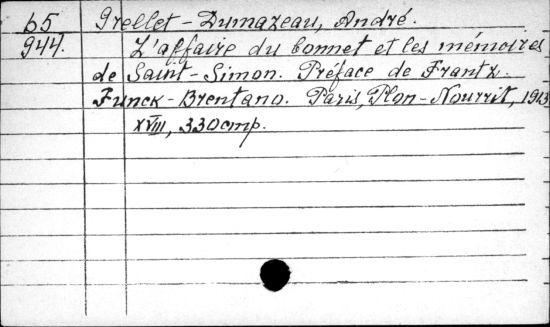 65 Grellet-Dumazeau, André.
944. L'affaire du bonnet et les mémoires
de Saint-Simon. Préface de Frantz
Funck-Brentano. Paris, Plon-Nourrit, 1913
XVIII, 330 стр.